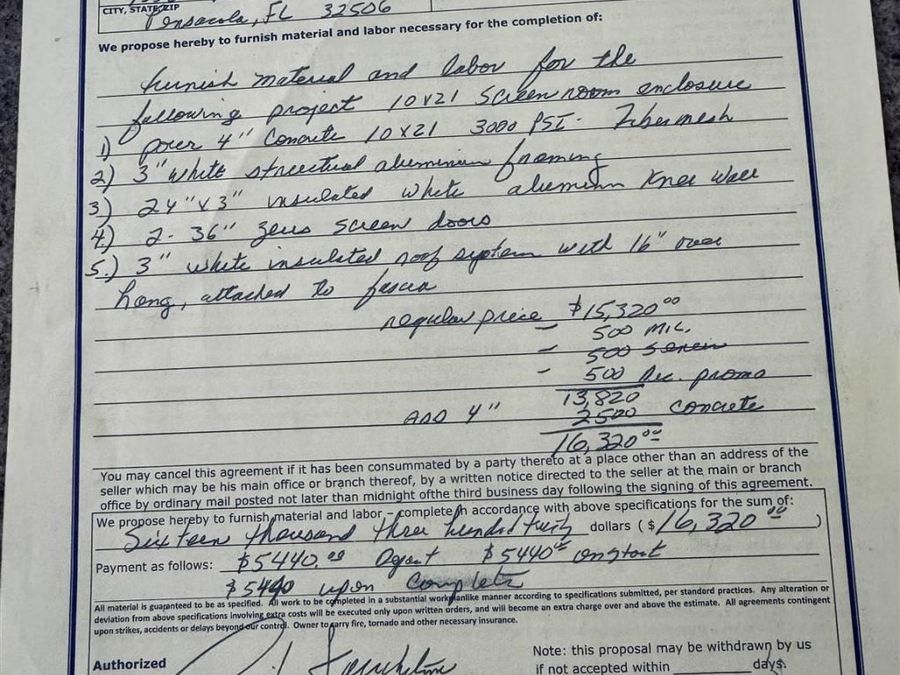 CITY, STATE, ZIP Pensacola, FL 32506
We propose hereby to furnish material and labor necessary for the completion of:
furnish material and labor for the
following project 10x21 Screen room enclosure
1) pour 4" Concrete 10x21 3000 PSI - Fibermesh
2) 3" white structural aluminum framing
3) 24"x3" insulated white aluminum Knee Wall
4) 2- 36" screen doors
5.) 3" white insulated roof system with 16" over
hang, attached to fascia
regular price $15,320.00
- 500 Mil.
- 500 Senior
- 500 Dec. promo
13,820
ADD 4" 2500 concrete
16,320.00
You may cancel this agreement if it has been consummated by a party thereto at a place other than an address of the
seller which may be his main office or branch thereof, by a written notice directed to the seller at the main or branch
office by ordinary mail posted not later than midnight ofthe third business day following the signing of this agreement.
We propose hereby to furnish material and labor - complete in accordance with above specifications for the sum of:
Sixteen thousand three hundred twenty dollars ($ 16,320.00 )
Payment as follows: $5440.00 $5440
$5440 upon complete
All material is guaranteed to be as specified. All work to be completed in a substantial workmanlike manner according to specifications submitted, per standard practices. Any alteration or
deviation from above specifications involving extra costs will be executed only upon written orders, and will become an extra charge over and above the estimate. All agreements contingent
upon strikes, accidents or delays beyond our control. Owner to carry fire, tornado and other necessary insurance.
Authorized
Note: this proposal may be withdrawn by us
if not accepted within days.